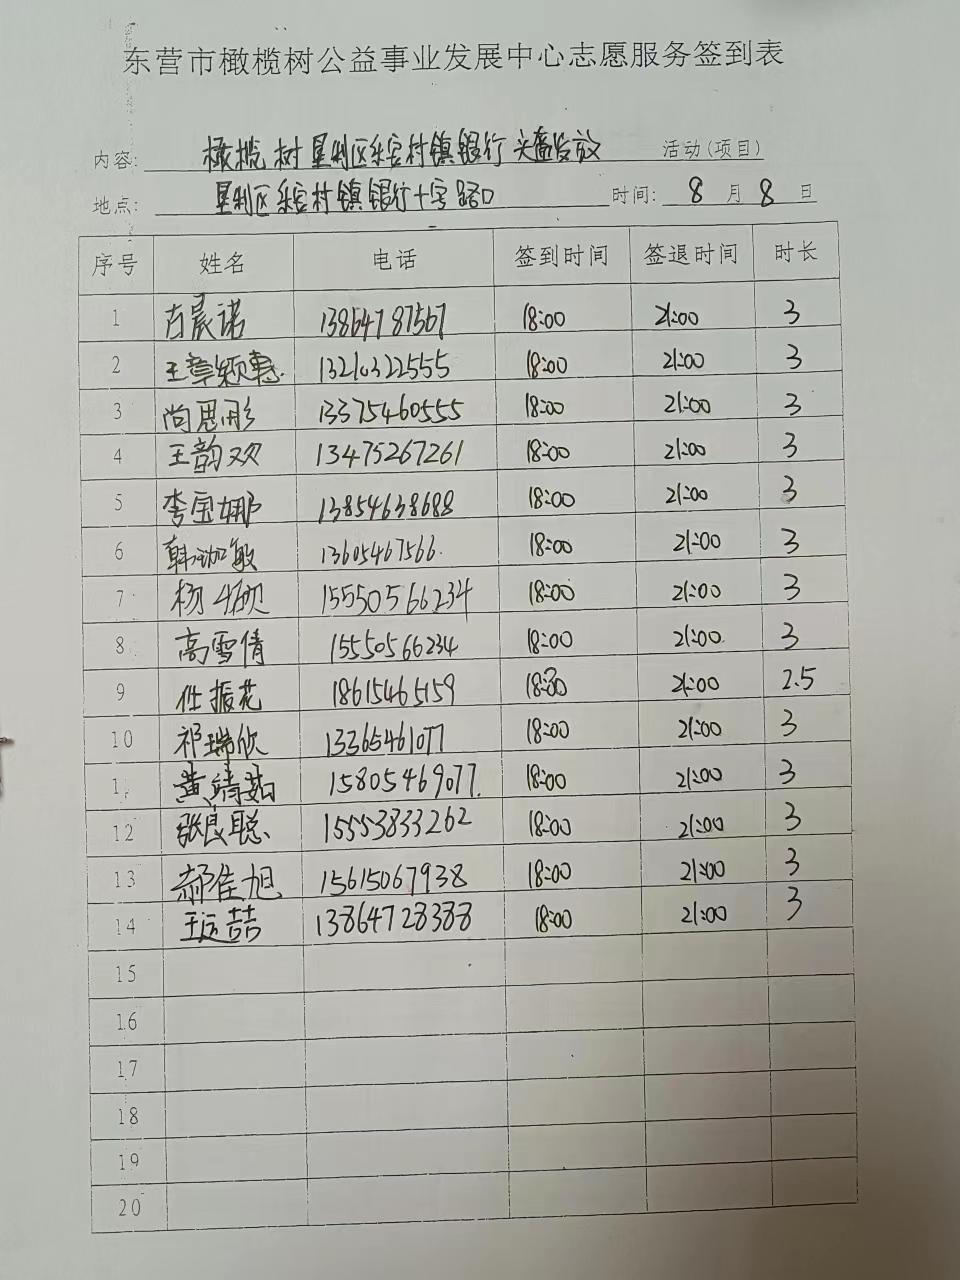 东营市橄榄树公益事业发展中心志愿服务签到表
内容: 橄榄树垦利区郝家村镇银行头盔发放 活动(项目)
地点: 垦利区郝家村镇银行十字路口 时间: 8 月 8 日
序号 姓名 电话 签到时间 签退时间 时长
1 晨诺 13864787567 18:00 21:00 3
2 王章颖慧 13210322555 18:00 21:00 3
3 尚思彤 13375460555 18:00 21:00 3
4 王韵双 13475267261 18:00 21:00 3
5 李宝娜 13854638688 18:00 21:00 3
6 韩敏 13605467566 18:00 21:00 3
7 杨硕 15550566234 18:00 21:00 3
8 高雪倩 15550566234 18:00 21:00 3
9 任振花 18615465159 18:30 21:00 2.5
10 祁瑞欣 13365461077 18:00 21:00 3
1 黄靖茹 15805469077 18:00 21:00 3
12 张良聪 15553833262 18:00 21:00 3
13 郝佳旭 15615067938 18:00 21:00 3
14 王运喆 13864728388 18:00 21:00 3
15
16
17
18
19
20